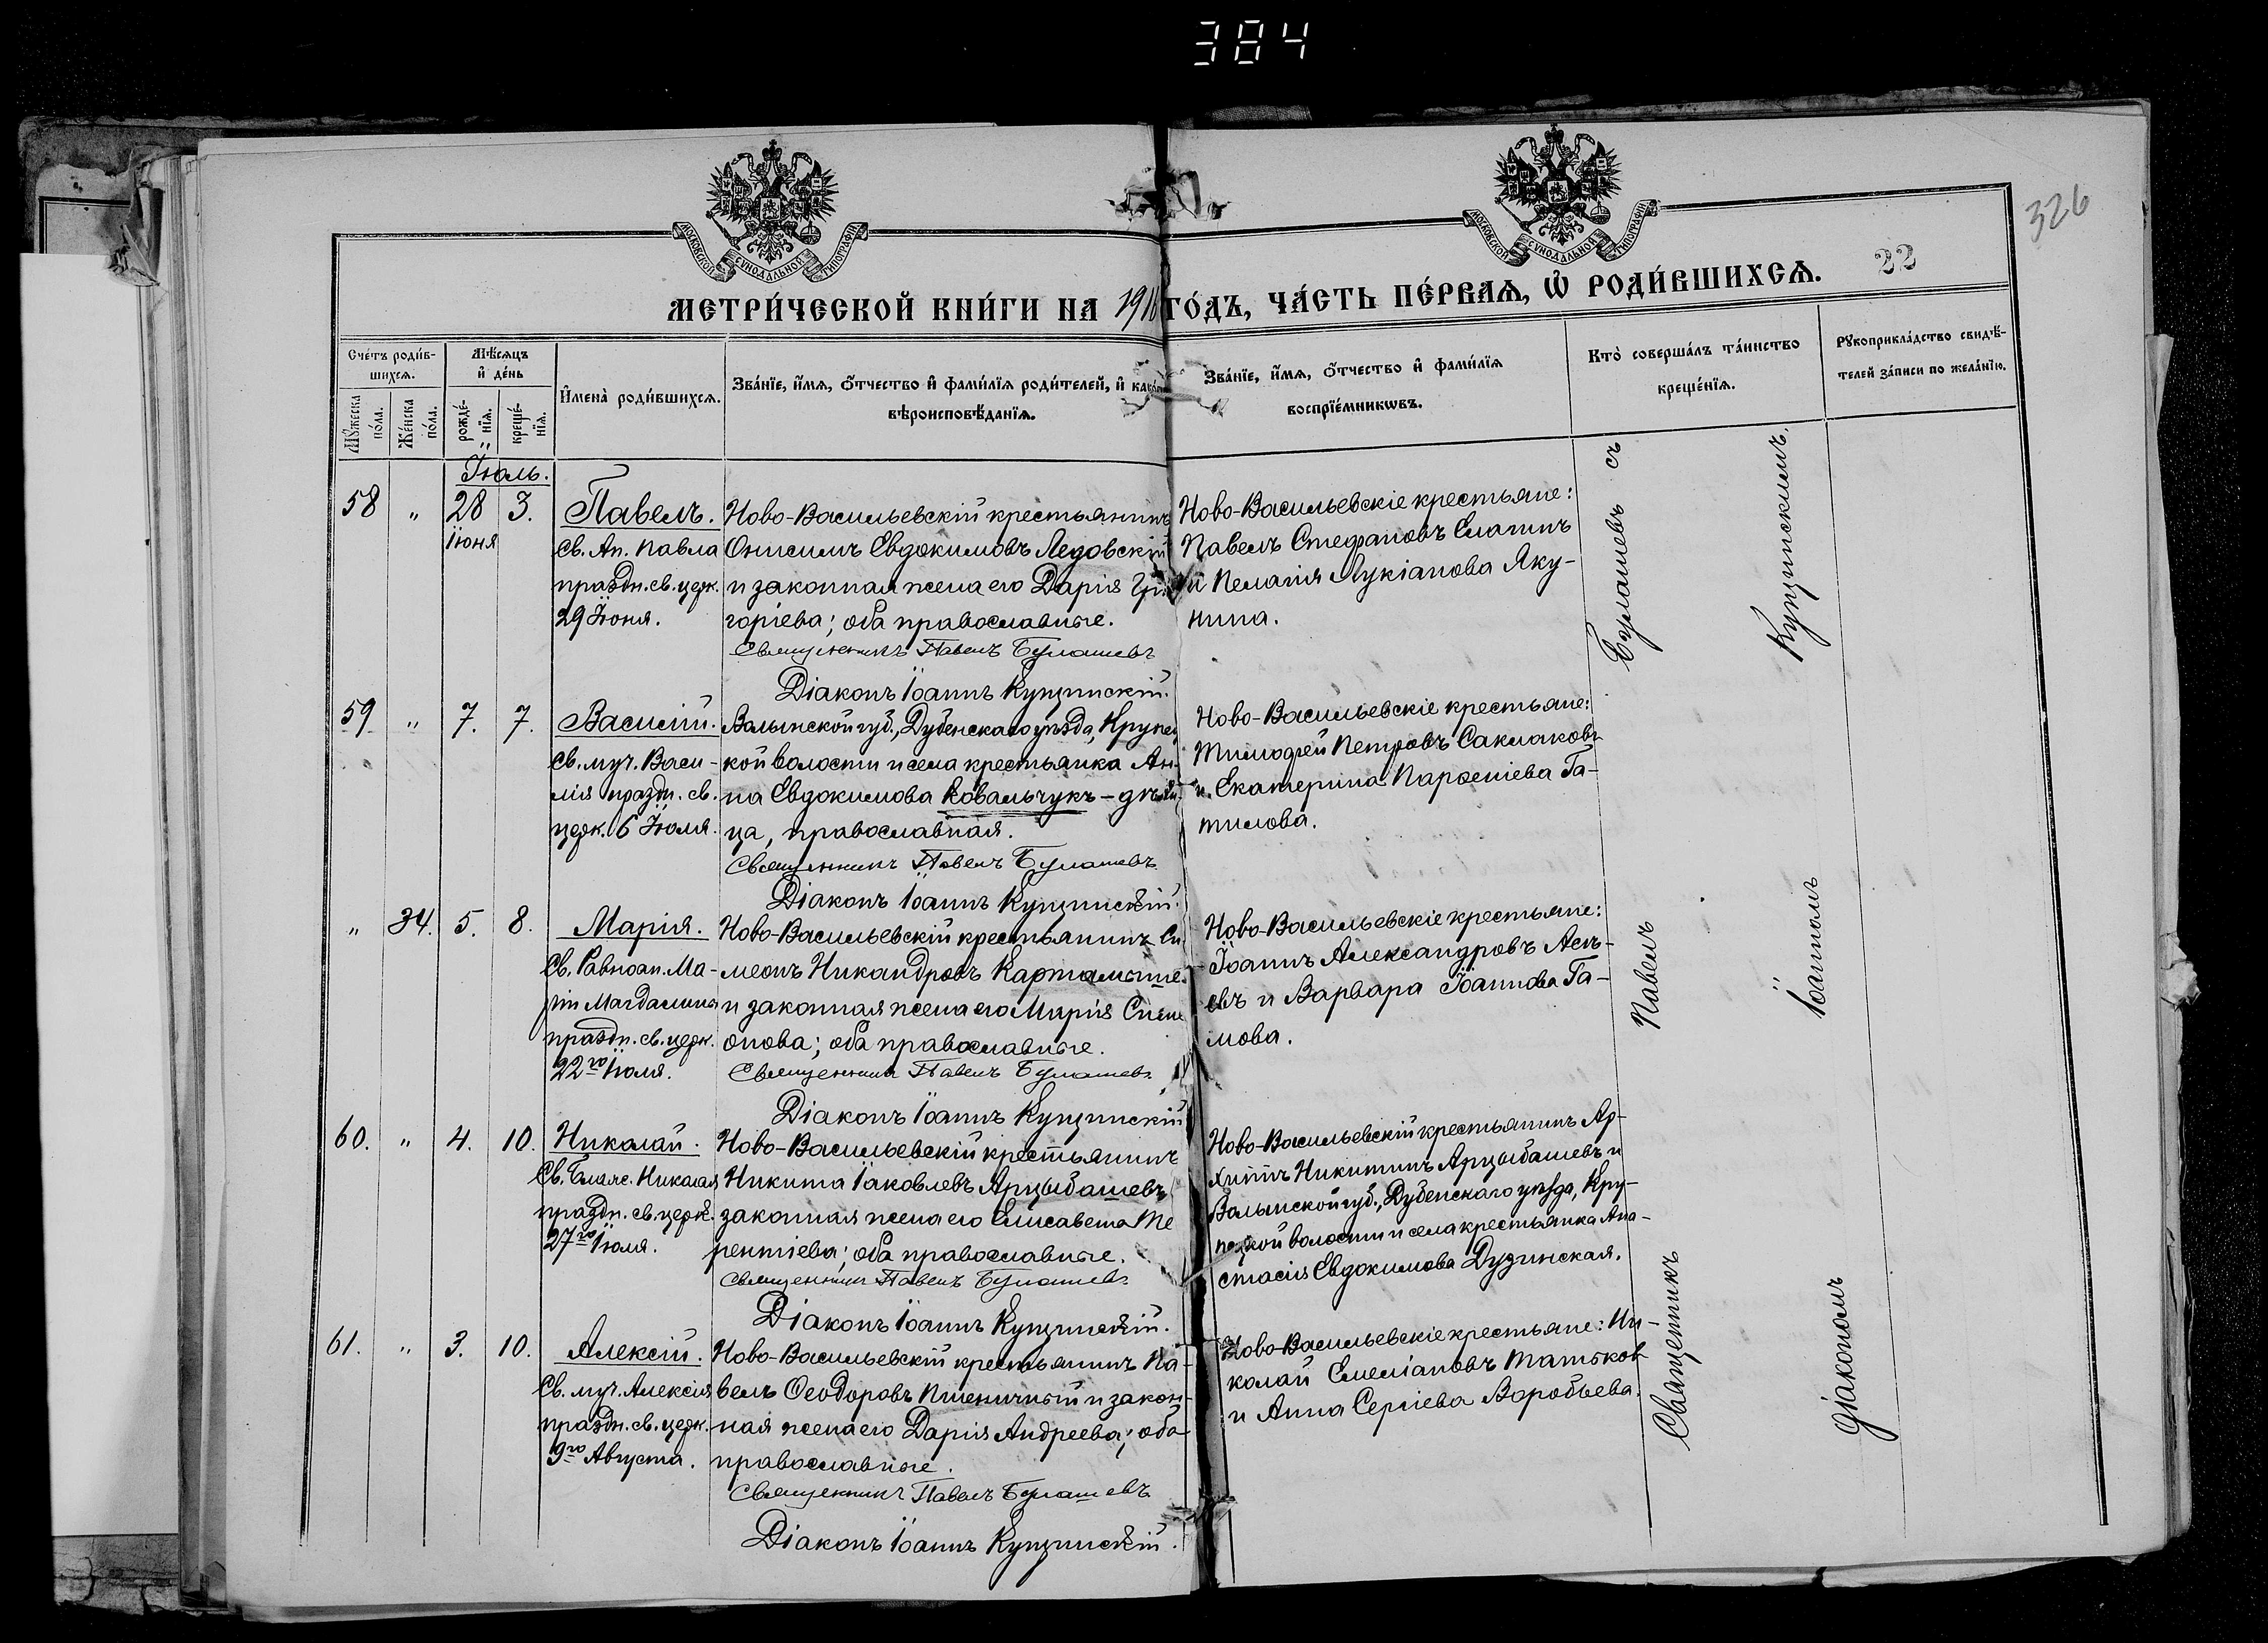 384
326
22
МОСКОВСКОЙ СѴНОДАЛЬНОЙ ТИПОГРАФІИ
МОСКОВСКОЙ СѴНОДАЛЬНОЙ ТИПОГРАФІИ
МЕТРИ́ЧЕСКОЙ КНИ́ГИ НА 1916 ГО́ДЪ, ЧА́СТЬ ПЕ́РВАѦ, Ѡ҆ РОДИ́ВШИХСѦ.
Сче́тъ роди́в-
шихсѧ.
Мѣ́сѧцъ
и҆ де́нь
Мꙋ́жеска по́ла.
Же́нска по́ла.
рожде́-
нїѧ.
креще́-
нїѧ.
И҆мена̀ роди́вшихсѧ.
Зва́нїе, и҆́мѧ, ѻ҆́тчество и҆ фами́лїѧ роди́телей, и҆ како́гѡ
вѣроисповѣ́данїѧ.
Зва́нїе, и҆́мѧ, ѻ҆́тчество и҆ фами́лїѧ
воспрїе́мникѡвъ.
Кто̀ соверша́лъ та́инство
креще́нїѧ.
Рꙋкоприкла́дство свидѣ́-
телей за́писи по жела́нїю.
Іюль.
58 " 28 Іюня 3.
Павелъ.
Св. Ап. Павла
праздн. св. церк.
29 Іюня.
Ново-Васильевскій крестьянинъ
Онисимъ Евдокимовъ Ледовскій
и законная жена его Дарія Гри-
горіева; оба православные.
Священникъ Павелъ Булашевъ
Діаконъ Іоаннъ Купчинскій.
Ново-Васильевскіе крестьяне:
Павелъ Стефановъ Елагинъ
и Пелагія Лукіанова Яку-
нина.
59 " 7. 7.
Василій.
Св. муч. Васи-
лія праздн. св.
церк. 6 Іюля.
Волынской губ., Дубенскаго уѣзда, Крупец-
кой волости и села крестьянка Ан-
на Евдокимова Ковальчукъ - дѣви-
ца, православная.
Священникъ Павелъ Булашевъ
Діаконъ Іоаннъ Купчинскій.
Ново-Васильевскіе крестьяне:
Тимофей Петровъ Саклаковъ
и Екатерина Парѳеніева Га-
тилова.
" 34. 5. 8.
Марія.
Св. Равноап. Ма-
ріи Магдалины
праздн. св. церк.
22го Іюля.
Ново-Васильевскій крестьянинъ Си-
меонъ Никандровъ Картамыше
и законная жена его Марія Симе
онова; оба православные.
Священникъ Павелъ Булашевъ
Діаконъ Іоаннъ Купчинскій
Ново-Васильевскіе крестьяне:
Іоаннъ Александровъ Асѣ-
евъ и Варвара Іоаннова Га-
мова.
60. " 4. 10.
Николай.
Св. Блаже. Николая
праздн. св. церк.
27го Іюля.
Ново-Васильевскій крестьянинъ
Никита Іаковлевъ Арцыбашевъ
законная жена его Елисавета Те
рентіева; оба православные.
Священникъ Павелъ Булашевъ
Діаконъ Іоаннъ Купчинскій.
Ново-Васильевскій крестьянинъ Ар-
хиппъ Никитинъ Арцыбашевъ и
Волынской губ., Дубенскаго уѣзда, Кру-
пецкой волости и села крестьянка Ана-
стасія Евдокимова Дузинская.
61. " 3. 10.
Алексій.
Св. муч. Алексія
праздн. св. церк.
9го Августа.
Ново-Васильевскій крестьянинъ Па-
велъ Ѳеодоровъ Пшеничный и закон-
ная жена его Дарія Андреева; оба
православные.
Священникъ Павелъ Булашевъ
Діаконъ Іоаннъ Купчинскій.
Ново-Васильевскіе крестьяне: Ни-
колай Емеліановъ Татьков
и Анна Сергіева Воробьева.
Священникъ Павелъ Булашевъ съ
діакономъ Іоанномъ Купчинскимъ.